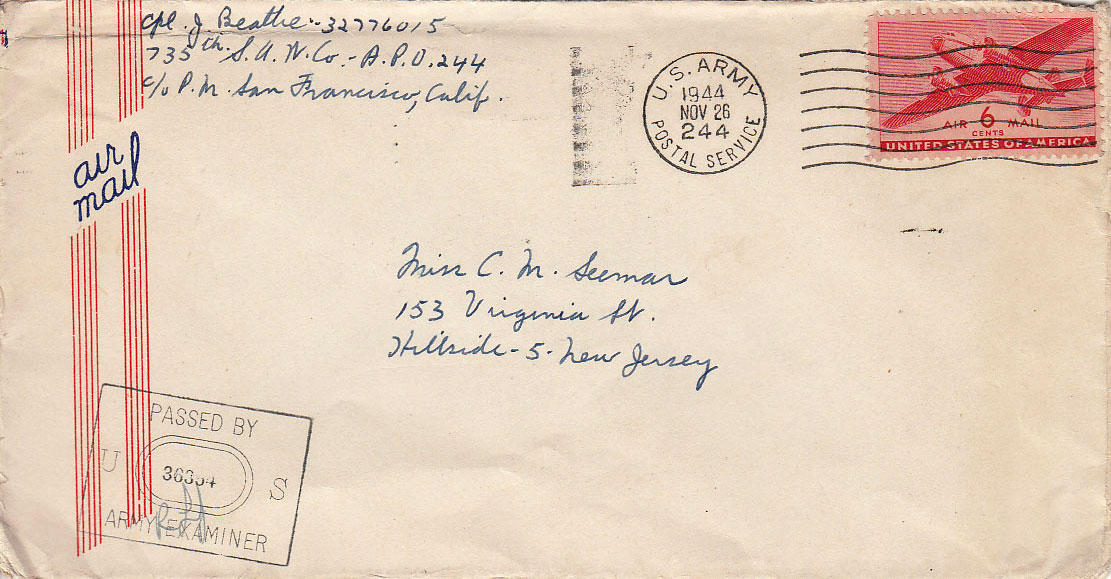 Cpl. J. Beattie - 32776015
735th S.A.W. Co. - A.P.O. 244
c/o P.M. San Francisco, Calif.
air
mail
U.S. ARMY
1944
NOV 26
244
POSTAL SERVICE
AIR 6 MAIL
CENTS
UNITED STATES OF AMERICA
Miss C. M. Seemar
153 Virginia St.
Hillside - 5 - New Jersey
PASSED BY
U S
ARMY EXAMINER